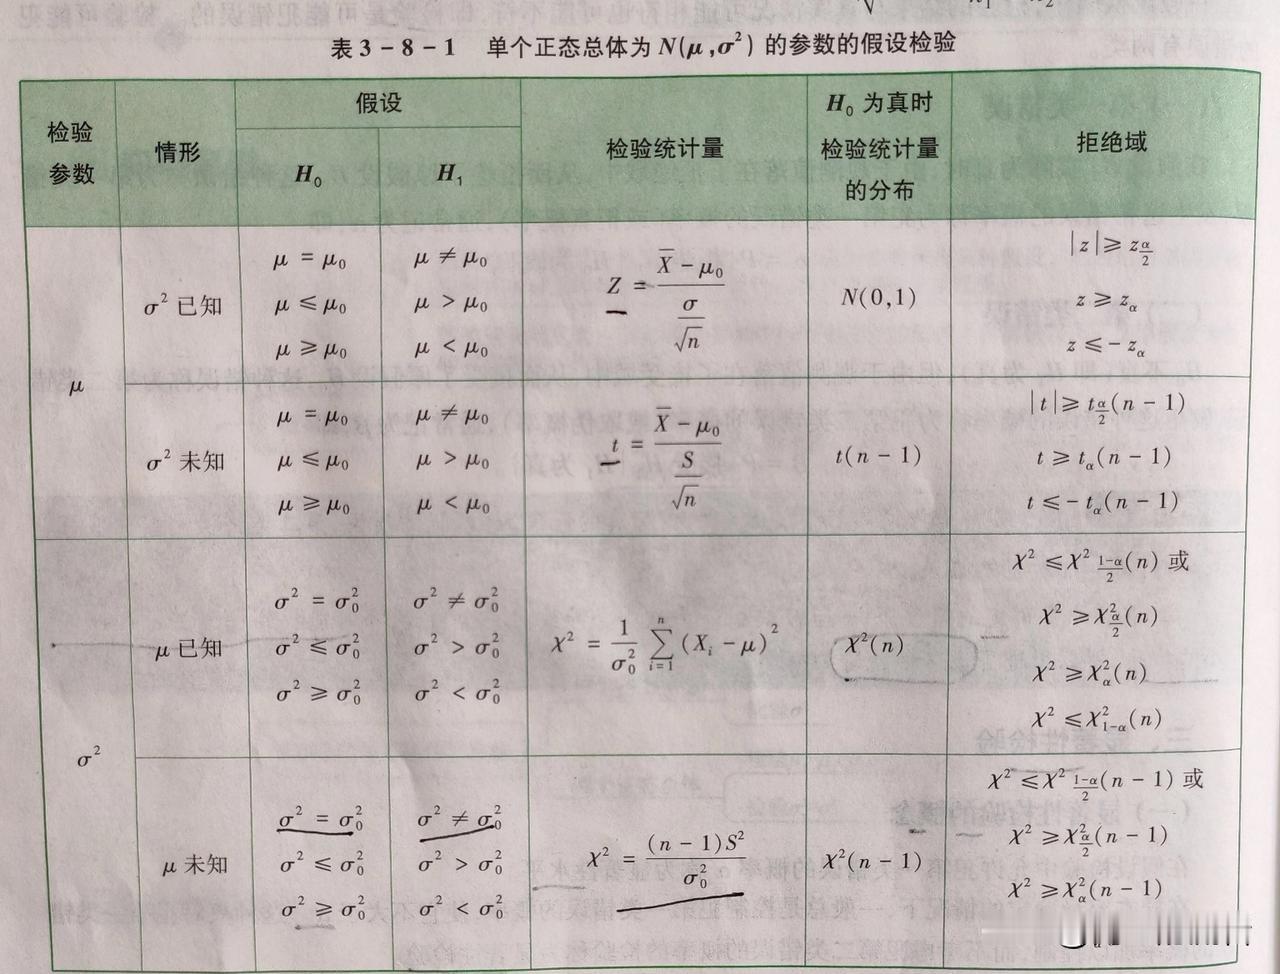 表 3-8-1 单个正态总体为 N(μ,σ²) 的参数的假设检验
检验参数 情形 假设 检验统计量 H₀ 为真时检验统计量的分布 拒绝域
H₀ H₁
μ
σ² 已知
μ = μ₀ μ ≠ μ₀
μ ≤ μ₀ μ > μ₀
μ ≥ μ₀ μ < μ₀
Z = (X̄ - μ₀) / (σ/√n)
N(0,1)
|z| ≥ z_{α/2}
z ≥ z_α
z ≤ - z_α
σ² 未知
μ = μ₀ μ ≠ μ₀
μ ≤ μ₀ μ > μ₀
μ ≥ μ₀ μ < μ₀
t = (X̄ - μ₀) / (S/√n)
t(n - 1)
|t| ≥ t_{α/2}(n - 1)
t ≥ t_α(n - 1)
t ≤ - t_α(n - 1)
σ²
μ 已知
σ² = σ₀² σ² ≠ σ₀²
σ² ≤ σ₀² σ² > σ₀²
σ² ≥ σ₀² σ² < σ₀²
χ² = (1/σ₀²) ∑_{i=1}^{n} (X_i - μ)²
χ²(n)
χ² ≤ χ²_{(1-α)/2}(n) 或
χ² ≥ χ²_{α/2}(n)
χ² ≥ χ²_α(n)
χ² ≤ χ²_{1-α}(n)
μ 未知
σ² = σ₀² σ² ≠ σ₀²
σ² ≤ σ₀² σ² > σ₀²
σ² ≥ σ₀² σ² < σ₀²
χ² = (n - 1)S² / σ₀²
χ²(n - 1)
χ² ≤ χ²_{(1-α)/2}(n - 1) 或
χ² ≥ χ²_{α/2}(n - 1)
χ² ≥ χ²_α(n - 1)